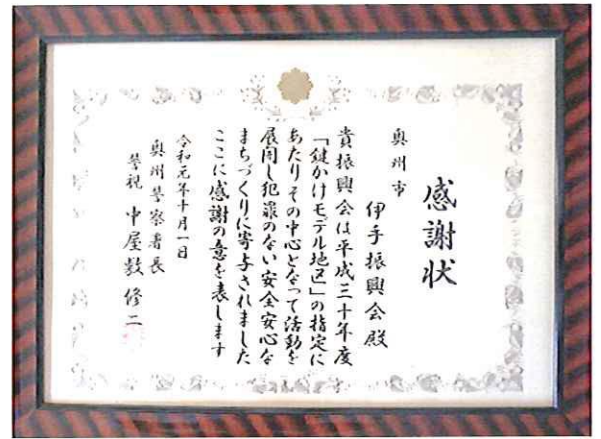 感謝状
奥州市
伊手振興会殿
貴振興会は平成三十年度
「鍵かけモデル地区」の指定に
あたりその中心となって活動を
展開し犯罪のない安全安心な
まちづくりに寄与されました
ここに感謝の意を表します
令和元年十月一日
奥州警察署長
警視 中屋敷修二